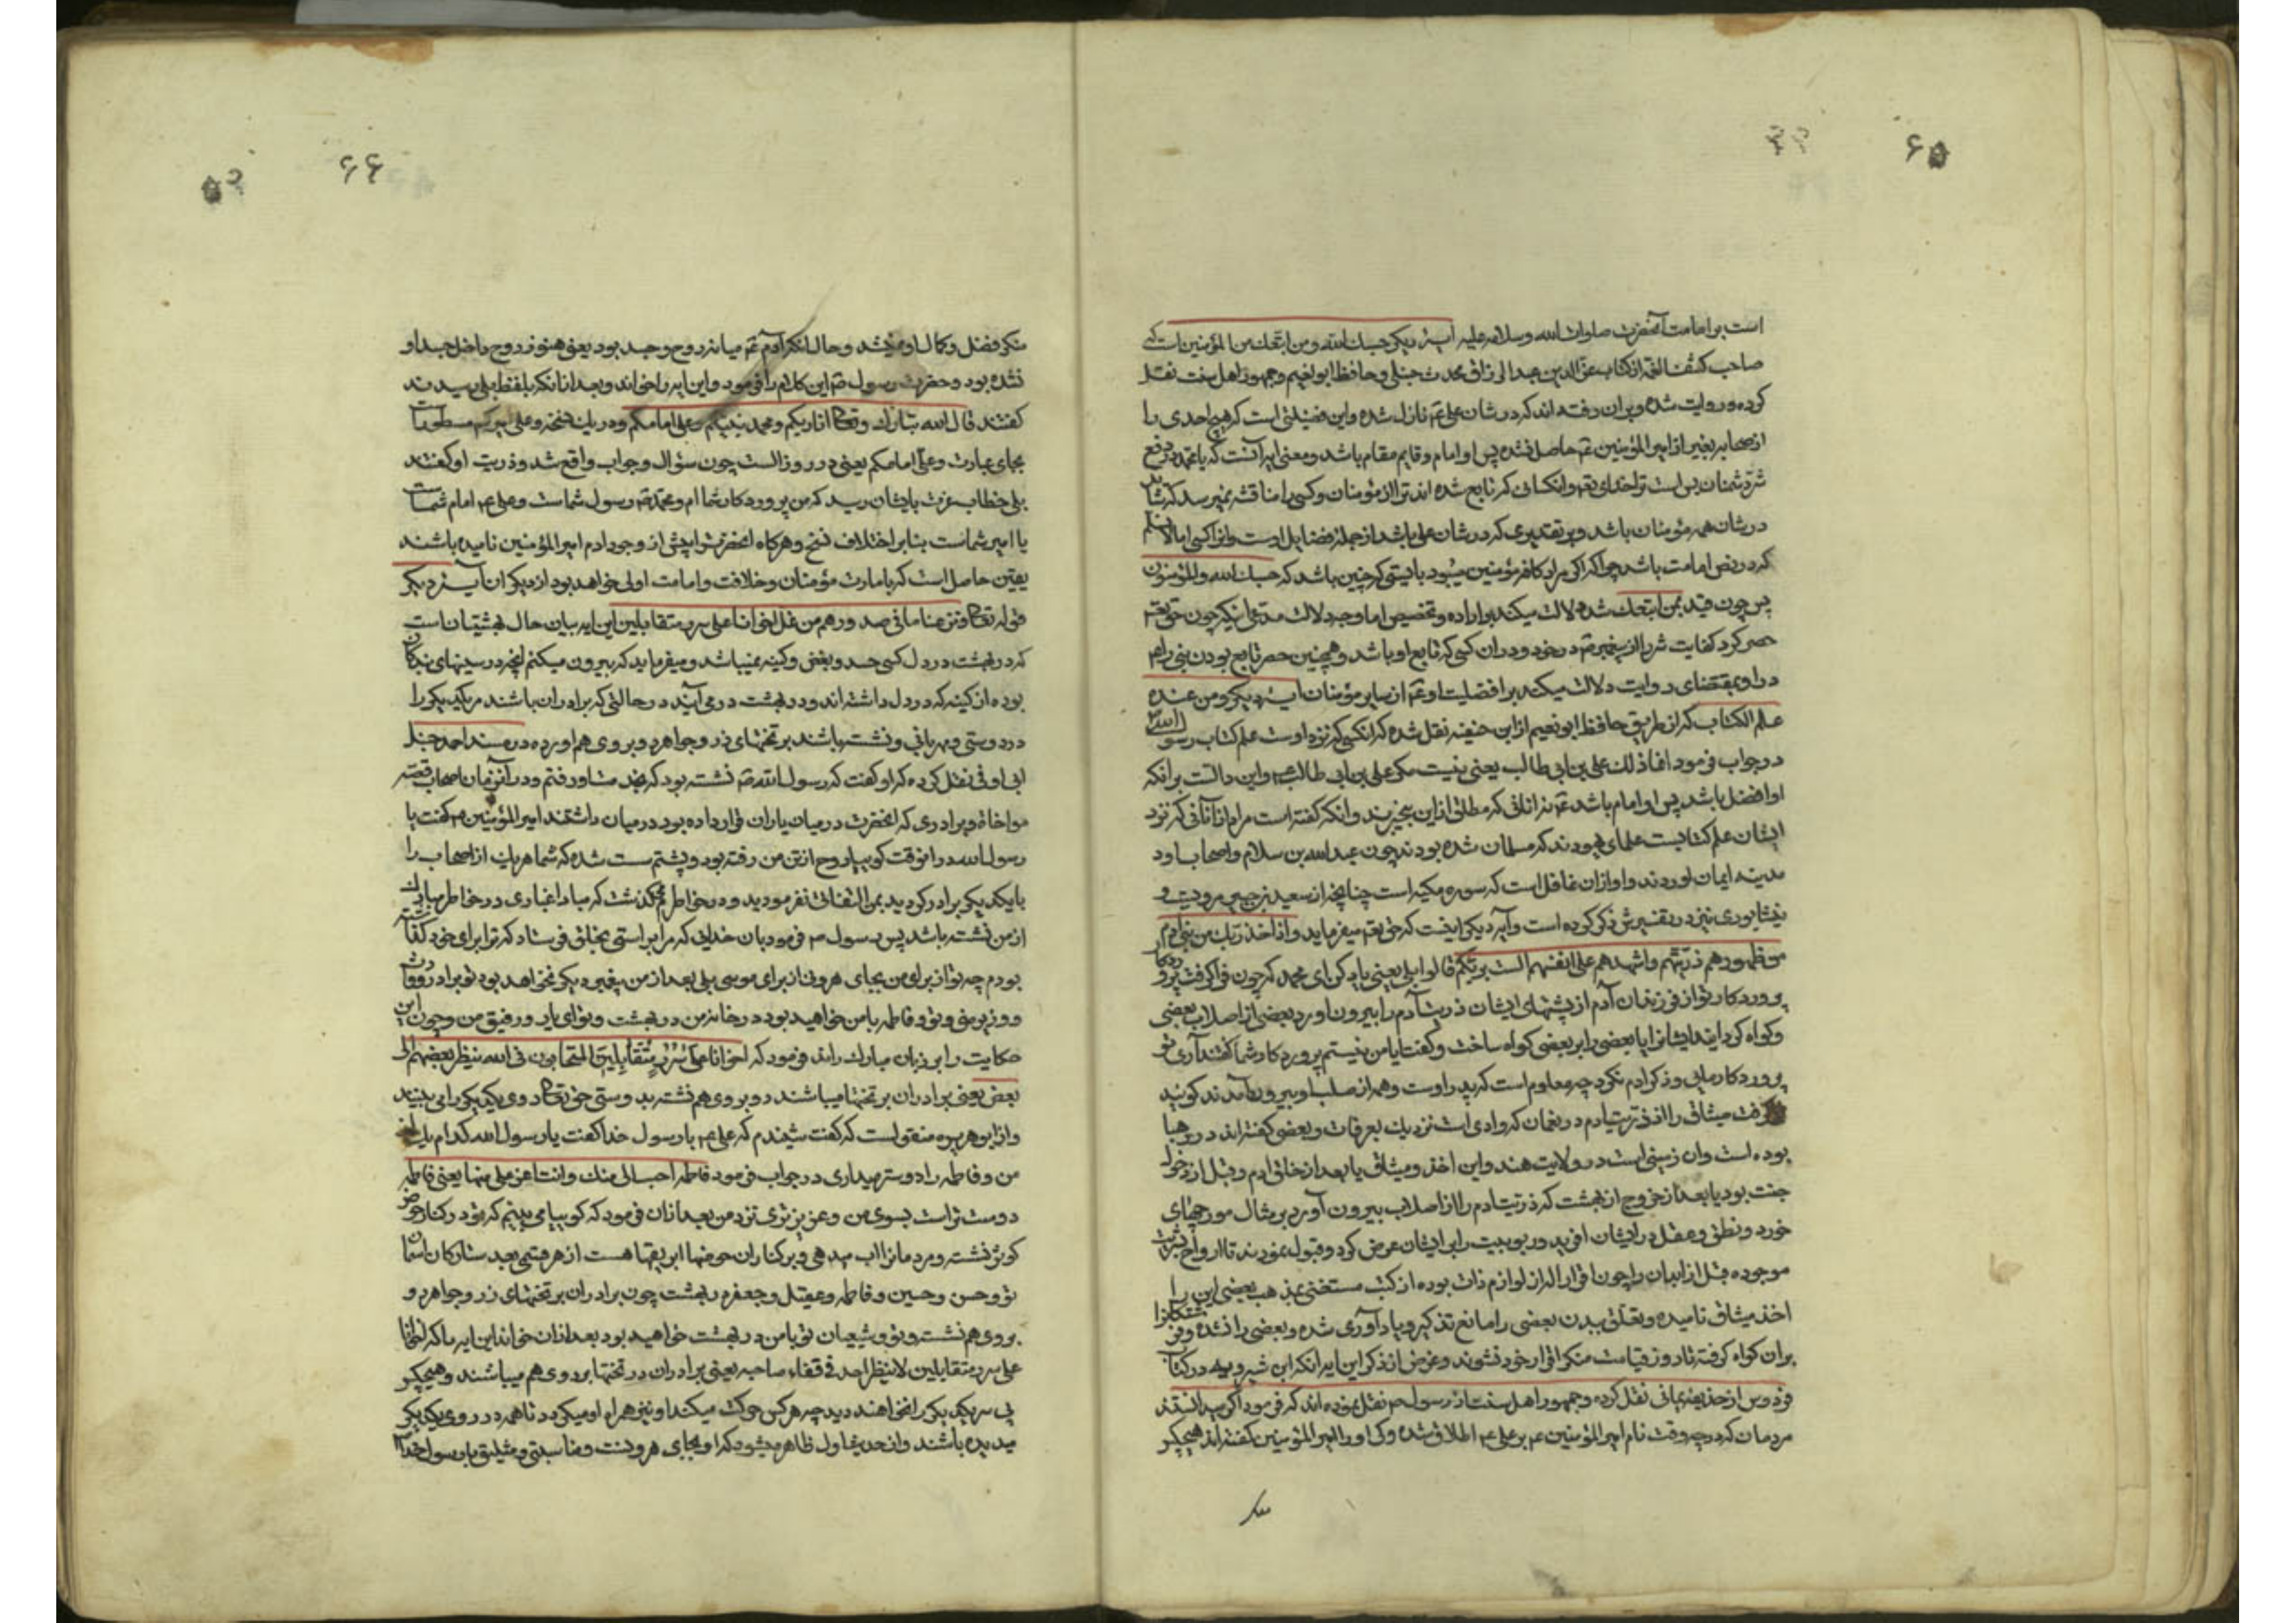 ۶۵
است بر امامت آنحضرت صلوات الله وسلامه علیه آیهٔ دیگر حسبك الله ومن اتبعك من المؤمنین است که
صاحب کشف الغمه از کتاب عز الدین عبد الرزاق محدث حنبلی و حافظ ابو نعیم وجمهور اهل سنت نقل
کرده و روایت شده و بران رفته اند که در شان علی ع نازل شده و این فضیلتی است که هیچ احدی را
از صحابه بغیر از امیر المؤمنین ع حاصل نشده پس او امام و قایم مقام باشد و معنی ایه آنست که یا محمد در دفع
شر دشمنان بس است ترا خدای تع و انکسانی که تابع شده اند ترا از مؤمنان و کسی را مناقشه نمیرسد که شاید
در شان همه مؤمنان باشد و بر تقدیری که در شان علی باشد از جمله فضایل اوست و از کسی اما لا نسلم
که در نص امامت باشد چرا که اکر مراد کافر مؤمنین میبود بایستی که چنین باشد که حسبك الله والمؤمنون
پس چون قید بمن اتبعك شده دلالت میکند بر اراده و تخصیص اما وجه دلالت مدعی انیکه چون حق تع
حصر کرد کفایت شر را از پیغمبر ص در خود و در ان کسی که تابع او باشد و همچنین حصر تابع بودن نبی را هم
در او بمقتضای روایت دلالت میکند بر افضلیت او ع از سایر مؤمنان ایهٔ دیگر ومن عنده
علم الکتاب که از طریق حافظ ابو نعیم از ابن حنفیه نقل شده که انکسی که نزد اوست علم کتاب رسول الله ص
در جواب فرمود انما ذلك علی بن ابی طالب یعنی نیست مکر علی بن ابی طالب ع و این دالست بر انکه
او افضل باشد پس او امام باشد ع نه انانی که مطلق از این بیخبرند و انکه کفته است مراد از آنانی که نزد
ایشان علم کتابست علمای یهودند که مسلمان شده بودند چون عبد الله بن سلام و اصحاب او در
مدینه ایمان اوردند و او از ان غافل است که سوره مکیه است چنانچه از سعید بن جبیر مرویست و
نیشابوری نیز در تفسیرش ذکر کرده است و آیه دیگر اینست که حق تع میفرماید و اذ اخذ ربك من بنی آدم
من ظهورهم ذریتهم واشهدهم علی انفسهم الست بربکم قالوا بلی یعنی یاد کن ای محمد که چون فرا کرفت پروردکار
پروردکار تو از فرزندان آدم از پشتهای ایشان ذریت آدم را بیرون اورد بعضی از اصلاب بعضی
وکواه کردایند ایشانرا یا بعضی را بر بعضی کواه ساخت و کفت ایا من نیستم پروردکار شما کفتند آری تو
پروردکار مایی و ذکر ادم نکرد چه معلوم است که پدر اوست و همه از صلب او بیرون آمدند کویند
کرفت میثاق را از ذریت ادم در نعمان که وادی است نزدیك بعرفات و بعضی کفته اند در دهیا
بوده است وان زمینی است در ولایت هند و این اخذ و میثاق یا بعد از خلق ادم و قبل از دخول
جنت بود یا بعد از خروج از بهشت که ذریت ادم را از اصلاب بیرون آورد بر مثال مورچهای
خورد و نطق و عقل در ایشان افرید و ربوبیت را بر ایشان عرض کرد و قبول نمودند تا ارواح بشریت
موجوده قبل از ابدان را چون اقرار از لوازم ذات بوده از کتب مستغنی بمذهب بعضی این را
اخذ میثاق نامیده و تعلق ببدن بعضی را مانع تذکیر و یاد آوری شده و بعضی را نشده و
بران کواه کرفته تا روز قیامت منکر اقرار خود نشوند و غرض از ذکر این ایه انکه ابن شیرویه در کتاب
فردوس از حذیفه یمانی نقل کرده و جمهور اهل سنت از رسول ص نقل نموده اند که فرمود اکر میدانستند
مردمان که در چه وقت نام امیر المؤمنین ع بر علی ع اطلاق شده و کی او را امیر المؤمنین کفته اند هیچکس
منکر
۶۶
منکر فضل و کمال او نمیشد و حال انکه آدم ع میانه روح و جسد بود یعنی هنوز روح داخل جسد او
نشده بود و حضرت رسول ص این کلام را فرمود و این ایه را خواند و بعد از انکه بلفظ بلی رسیدند
کفتند قال الله تبارك وتعالی انا ربکم ومحمد نبیکم وعلی امامکم و در یك نسخه وعلی امیرکم مسطورست
بجای عبارت وعلی امامکم یعنی در روز الست چون سؤال و جواب واقع شد و ذریت او کفتند
بلی خطاب عزت بایشان رسید که من پروردکار شما ام و محمد ص رسول شماست و علی ع امام شماست
یا امیر شماست بنا بر اختلاف نسخ و هرکاه انحضرت را پیش از وجود ادم امیر المؤمنین نامیده باشند
یقین حاصل است که بامارت مؤمنان و خلافت و امامت اولی خواهد بود از دیکران آیهٔ دیگر
قوله تعالی ونزعنا ما فی صدورهم من غل اخوانا علی سرر متقابلین این ایه بیان حال بهشتیان است
که در بهشت در دل کسی حسد و بغض و کینه نمیباشد و میفرماید که بیرون میکنم انچه در سینهای بندکان
بوده از کینه که در دل داشته اند و در بهشت در می آیند در حالتی که برادران باشند مر یکدیکر را
در دوستی و مهربانی و نشسته باشند بر تختهای زر و جواهر و بروی هم اورده در مسند احمد حنبل
ابی اوفی نقل کرده که او کفت که رسول الله ص نشسته بود که بخدمت او رفتم و در آنزمان اصحاب قصه
مواخاة و برادری که انحضرت در میان یاران قرار داده بود در میان داشتند امیر المؤمنین ع کفت یا
رسول الله در انوقت کویا روح از تن من رفته بود و پشتم سست شده که شما هر یك از اصحاب را
با یکدیکر برادر کردید بمن التفاتی نفرمودید و در خاطرم کذشت که مبادا غباری در خاطر مبارك
از من نشسته باشد پس رسول ص فرمود بان خدایی که مرا براستی بخلق فرستاد که ترا برای خود کذاشته
بودم چه تو از برای من بجای هرونی از برای موسی بلی بعد از من پیغمبر دیکر نخواهد بود تو برادر و وارث
و وزیر منی و تو و فاطمه با من خواهید بود در خانه من در بهشت و تو ای یار و رفیق من و چون این
حکایت را بر زبان مبارك راند فرمود که اخوانا علی سرر متقابلین المتحابون فی الله ینظر بعضهم الی
بعض یعنی برادران بر تختها میباشند رو بروی هم نشسته بدوستی حق تعالی روی یکدیکر را می بینند
و از ابو هریره منقولست که کفت شنیدم که علی ع با رسول خدا کفت یا رسول الله کدام یك از
من و فاطمه را دوستر میداری در جواب فرمود فاطمة احب الی منك وانت اعز علی منها یعنی فاطمه
دوست تر است بسوی من و عزیز تری نزد من بعد از ان فرمود که کویا می بینم که تو در کنار حوض
کوثر نشسته و مردمانرا اب میدهی و بر کنار ان حوضها ابریقها هست از هر قسمی بعدد ستارکان اسمان
تو و حسن و حسین و فاطمه و عقیل و جعفر در بهشت چون برادران بر تختهای زر و جواهر و
بروی هم نشسته و تو و شیعیان تو با من در بهشت خواهید بود بعد از ان خواند این ایه را که اخوانا
علی سرر متقابلین لا ینظر احد فی قفاء صاحبه یعنی برادران در تختها بر روی هم میباشند و هیچکس
پی سر یکدیکر را نخواهند دید چه هر کس حرکت میکند او نیز همراه او میکردد تا همه در روی یکدیکر
میدیده باشند و از حدیث اول ظاهر میشود که او بجای هرونست و مناسبتی و مثلیتی با رسول خدا